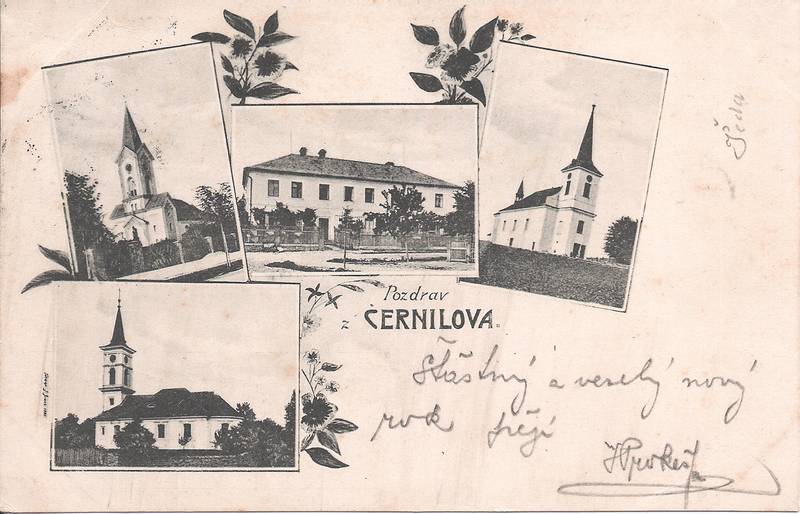 Pozdrav
z ČERNILOVA.
Šťastný a veselý nový
rok přejí
Prokeš